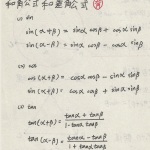 和角公式和差角公式
(1) sin
sin(α+β) = sinα cosβ + cosα sinβ
sin(α-β) = sinα cosβ - cosα sinβ
(2) cos
cos(α+β) = cosα cosβ - sinα sinβ
cos(α-β) = cosα cosβ + sinα sinβ
(3) tan
tan(α+β) = tanα + tanβ / 1 - tanα tanβ
tan(α-β) = tanα - tanβ / 1 + tanα tanβ